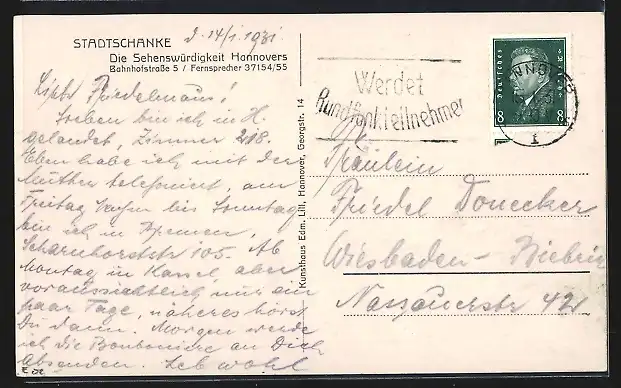 STADTSCHÄNKE
d. 14/1. 1931.
Die Sehenswürdigkeit Hannovers
Bahnhofstraße 5 / Fernsprecher 37154/55
Liebe Friedelmaus!
Soeben bin ich in H.
gelandet, Zimmer 218.
Eben habe ich mit der
Mutter telefoniert, am
Freitag bis Sonntag
bin ich in Bremen,
Scharnhorststr 105. Ab
Montag in Kassel, aber
voraussichtlich nur ein
paar Tage, näheres hörst
Du dann. Morgen werde
ich die Bonboniere an Dich
absenden. Leb wohl
Kunsthaus Edm. Lill, Hannover, Georgstr. 14
Werdet
Rundfunkteilnehmer
Deutsches Reich
8 8
1
Fräulein
Friedel Donecker
Wiesbaden-Biebrich
Nassauerstr 42